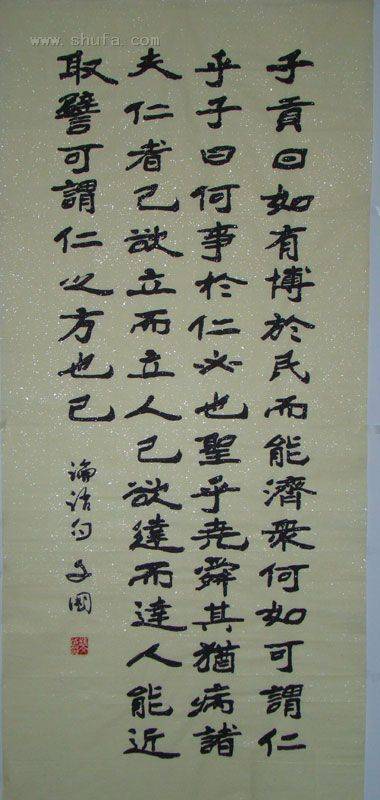 www.shufa.com
子貢曰如有博於民而能濟衆何如可謂仁
乎子曰何事於仁必也聖乎堯舜其猶病諸
夫仁者己欲立而立人己欲達而達人能近
取譬可謂仁之方也已
論語句 文國